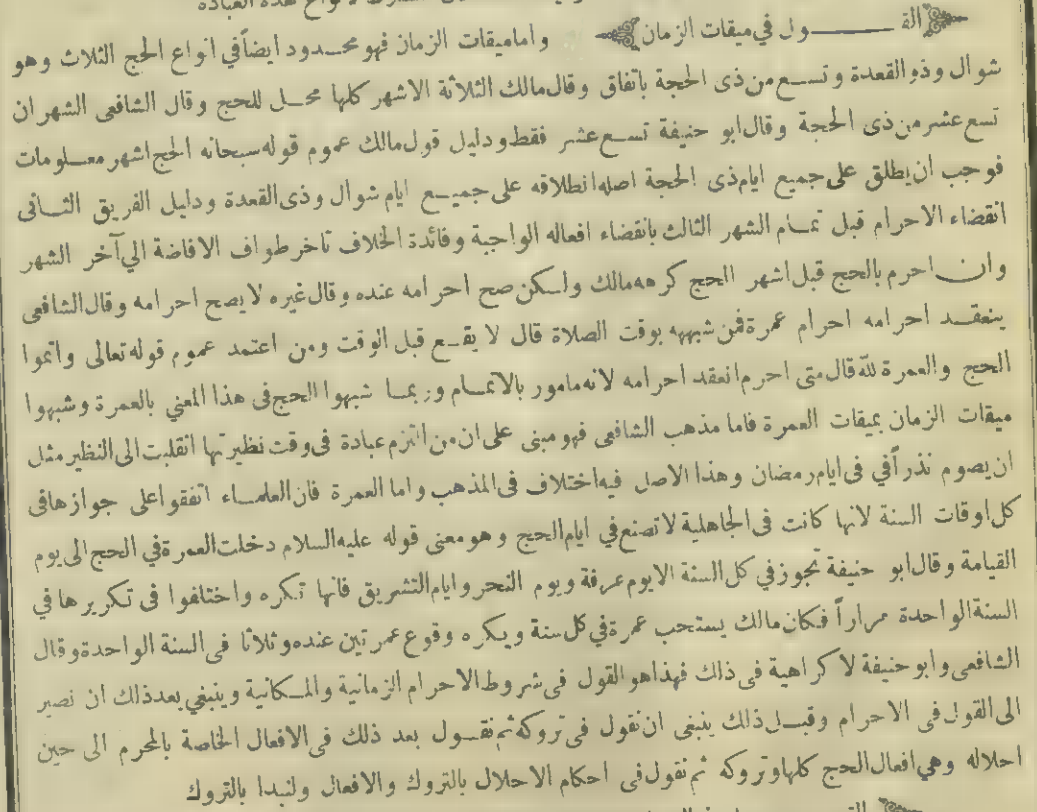 هذه العبادة
القـــول في ميقات الزمان واما ميقات الزمان فهو محـدود ايضاً في انواع الحج الثلاث وهو
شوال وذو القعدة وتسـع من ذى الحجة باتفاق وقال مالك الثلاثة الاشهر كلها محـل للحج وقال الشافعى الشهران
تسع عشر من ذى الحجة وقال ابو حنيفة تسـع عشر فقط ودليل قول مالك عموم قوله سبحانه الحج اشهر معـلومات
فوجب ان يطلق على جميع ايام ذى الحجة اصله انطلاقه على جميـع ايام شوال وذى القعدة ودليل الفريق الثـانى
انقضاء الاحرام قبل تمـام الشهر الثالث بانقضاء افعاله الواجبة وفائدة الخلاف تاخر طواف الافاضة الي آخر الشهر
وان احرم بالحج قبل اشهر الحج كرهه مالك ولكن صح احرامه عنده وقال غيره لا يصح احرامه وقال الشافعى
ينعقـد احرامه احرام عمرة فمن شبهه بوقت الصلاة قال لا يقـع قبل الوقت ومن اعتمد عموم قوله تعالى واتموا
الحج والعمرة لله قال متى احرم انعقد احرامه لانه مامور بالاتمـام وربمـا شبهوا الحج فى هذا المعني بالعمرة وشبهوا
ميقات الزمان بميقات العمرة فاما مذهب الشافعى فهو مبنى على ان من التزم عبادة فى وقت نظيرتها انقلبت الى النظير مثل
ان يصوم نذراً في فى ايام رمضان وهذا الاصل فيه اختلاف فى المذهب واما العمرة فان العلمـاء اتفقوا على جوازها فى
كل اوقات السنة لانها كانت فى الجاهلية لا تصنع في ايام الحج وهو معنى قوله عليه السلام دخلت العمرة في الحج الى يوم
القيامة وقال ابو حنيفة تجوز في كل السنة الا يوم عرفة ويوم النحر وايام التشريق فانها تكره واختلفوا فى تكريرها في
السنة الواحدة مراراً فكان مالك يستحب عمرة في كل سنة ويكره وقوع عمرتين عنده وثلاثا فى السنة الواحدة وقال
الشافعى وابو حنيفة لا كراهية فى ذلك فهذا هو القول فى شروط الاحرام الزمانية والمـكانية وينبغي بعد ذلك ان نصير
الى القول فى الاحرام وقبـل ذلك ينبغى ان نقول فى تروكه ثم نقـول بعد ذلك فى الافعال الخاصة بالمحرم الى حين
احلاله وهي افعال الحج كلها وتروكه ثم نقول فى احكام الاحلال بالتروك والافعال ولنبدا بالتروك